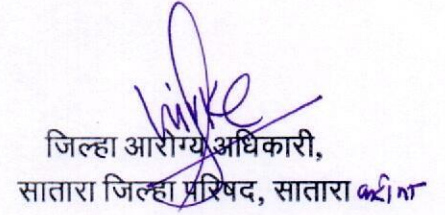 जिल्हा आरोग्य अधिकारी,
सातारा जिल्हा परिषद, सातारा